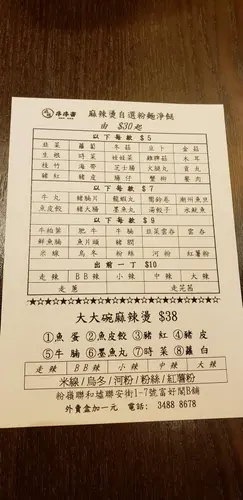 麻辣燙自選粉麵淨餸
由 $30起
以下每款 $5
韭菜 蘿蔔 冬菇 豆卜 金菇
生根 時菜 娃娃菜 雞脾菇 木耳
桂竹 海帶 芝士腸 火腿丸 貢丸
豬紅 豬皮 腸仔 蟹柳 餐肉
以下每款 $7
牛丸 豬腩片 龍蝦丸 潮州魚旦
魚皮餃 豬大腸 墨魚丸 湯餃子 水魷魚
以下每款 $9
牛柏葉 肥牛 牛腩 韭菜雲吞 雲吞
鮮魚腩 魚片頭 豬膶
米線 烏冬 粉絲 河粉 紅薯粉
出前一丁 $10
走辣 BB辣 小辣 中辣 大辣
走蔥 走芫荽
大大碗麻辣燙 $38
①魚蛋 ②魚皮餃 ③豬紅 ④豬皮
⑤牛腩 ⑥墨魚丸 ⑦時菜 ⑧蘿白
走辣 BB辣 小辣 中辣 大辣
米線/烏冬/河粉/粉絲/紅薯粉
粉嶺聯和墟聯安街1-7號富好閣B舖
外賣盒加一元 電話: 3488 8678